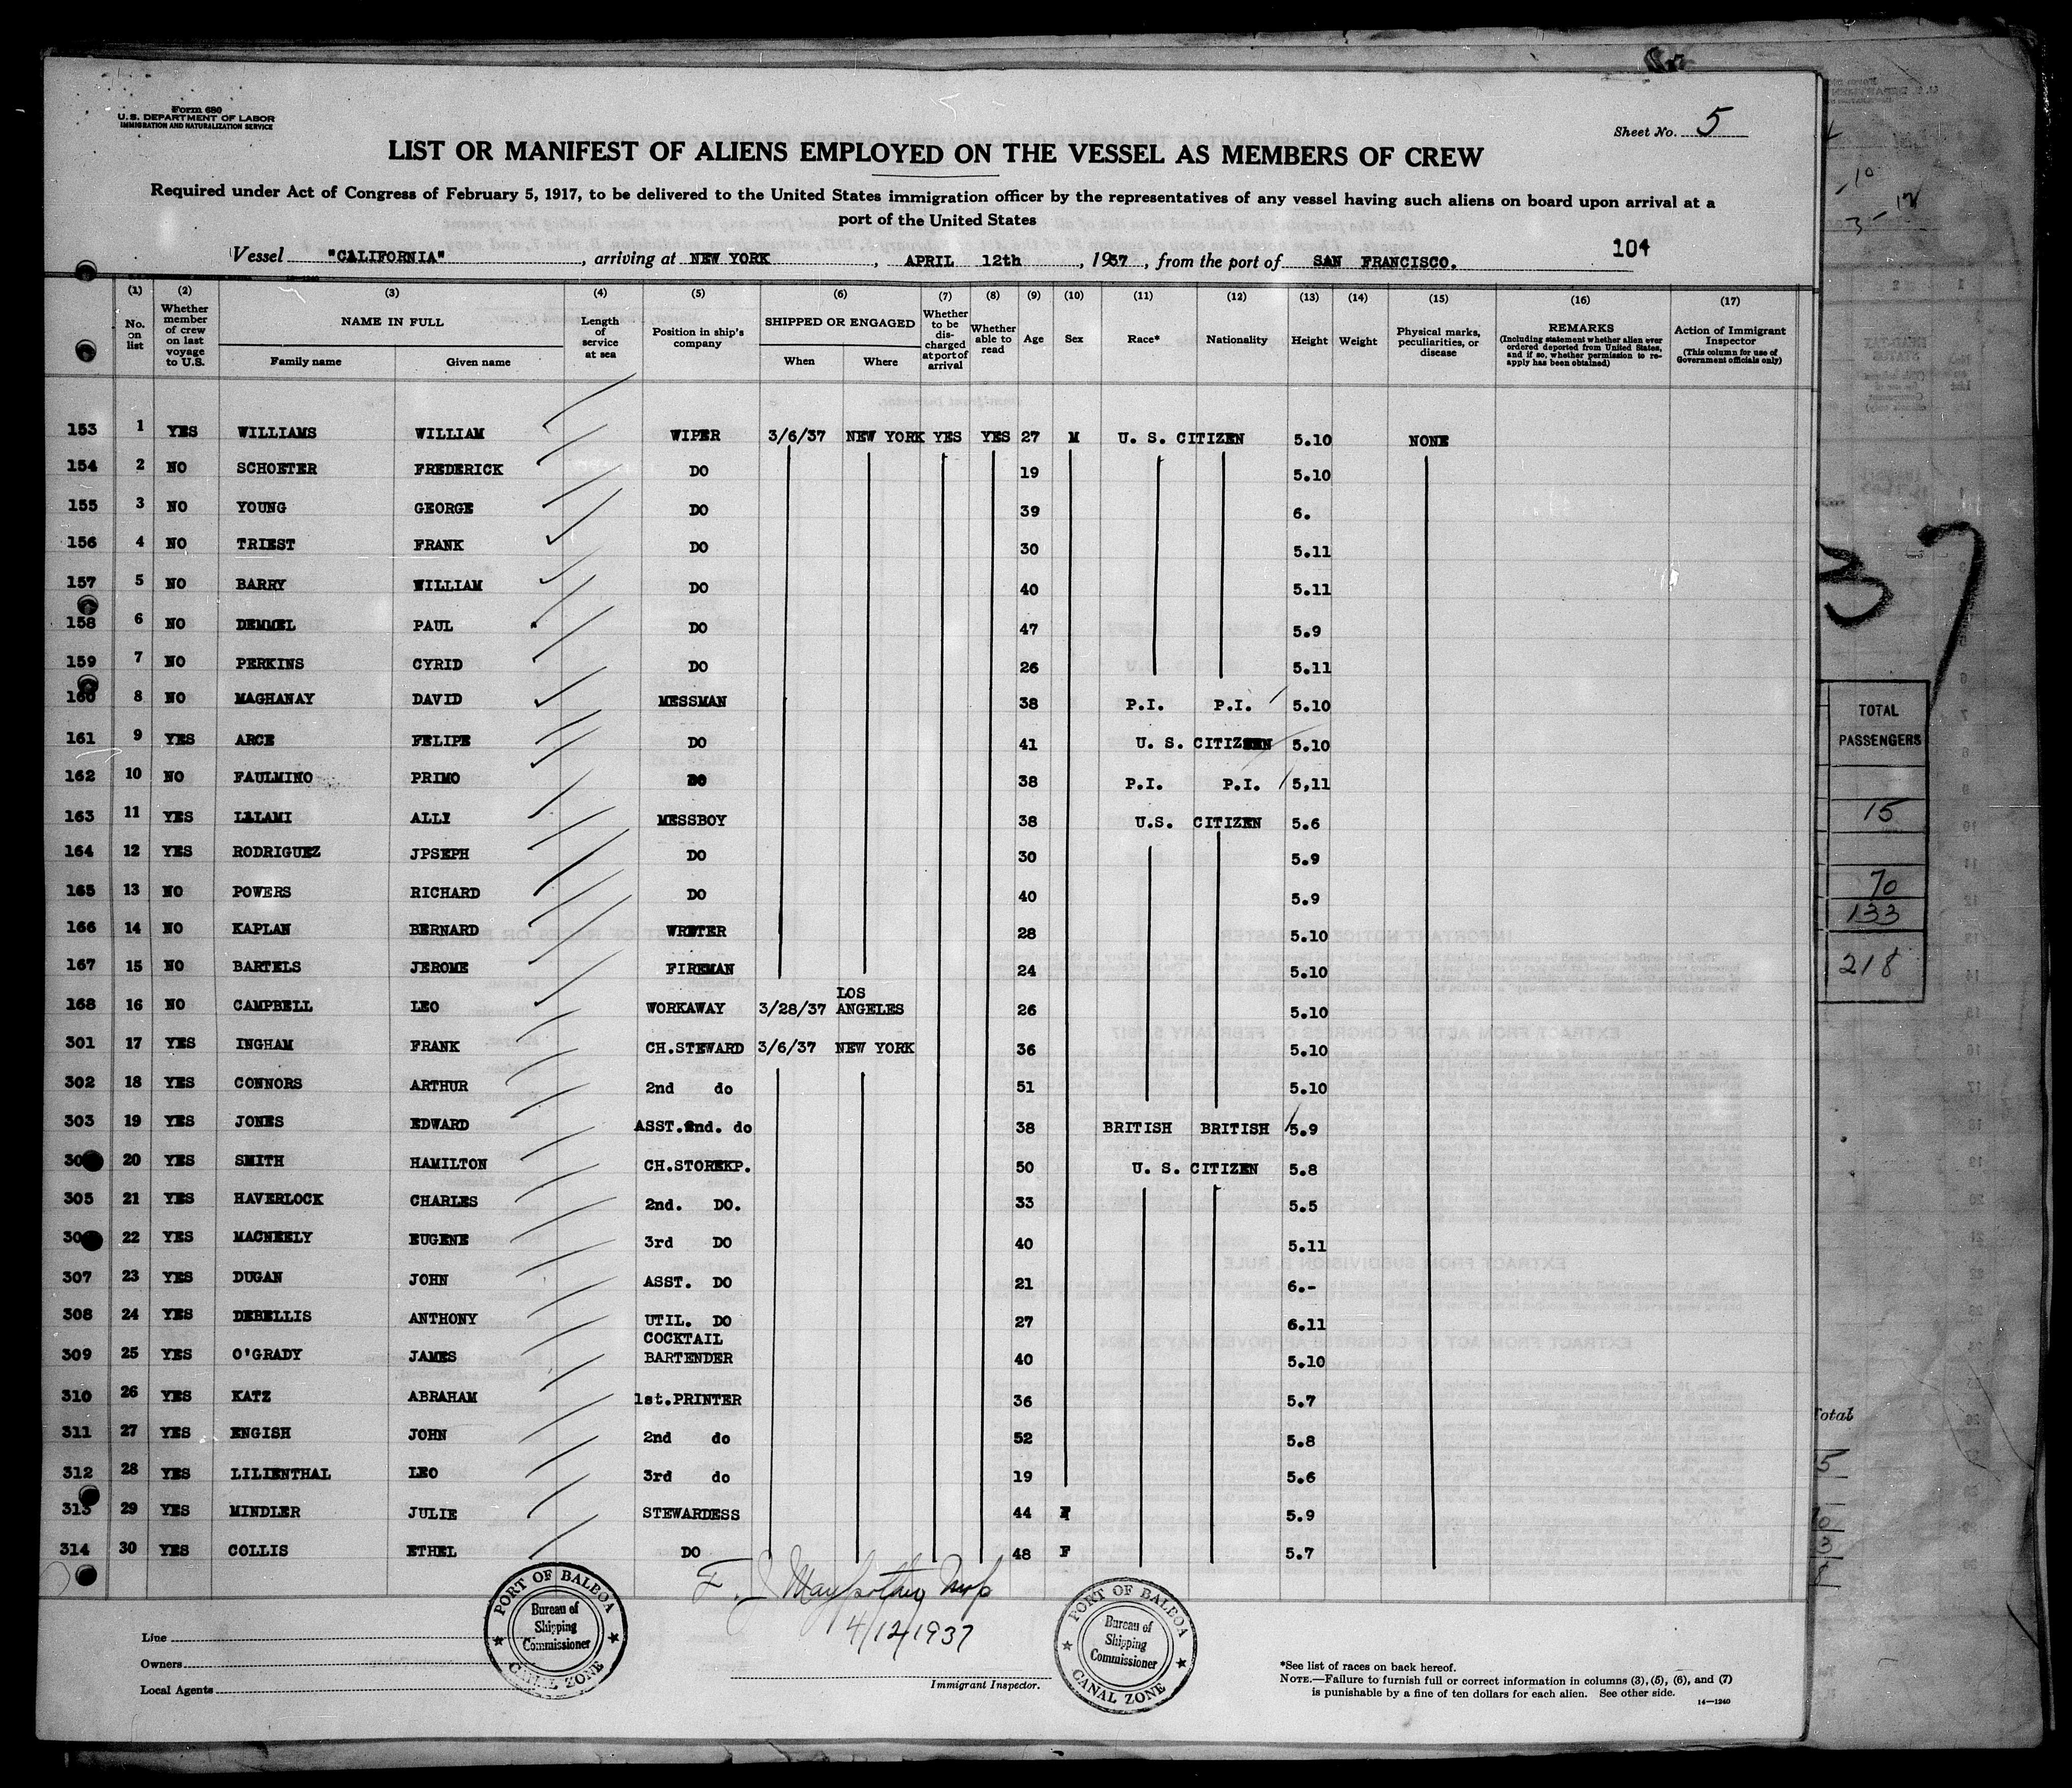 Form 680
U.S. DEPARTMENT OF LABOR
IMMIGRATION AND NATURALIZATION SERVICE
Sheet No. 5
LIST OR MANIFEST OF ALIENS EMPLOYED ON THE VESSEL AS MEMBERS OF CREW
Required under Act of Congress of February 5, 1917, to be delivered to the United States immigration officer by the representatives of any vessel having such aliens on board upon arrival at a
port of the United States
104
Vessel "CALIFORNIA", arriving at NEW YORK, APRIL 12th, 1937, from the port of SAN FRANCISCO.
(1) No. on list
(2) Whether member of crew on last voyage to U.S.
(3) NAME IN FULL Family name Given name
(4) Length of service at sea
(5) Position in ship's company
(6) SHIPPED OR ENGAGED When Where
(7) Whether to be discharged at port of arrival
(8) Whether able to read
(9) Age
(10) Sex
(11) Race*
(12) Nationality
(13) Height
(14) Weight
(15) Physical marks, peculiarities, or disease
(16) REMARKS (Including statement whether alien ever ordered deported from United States, and if so, whether permission to reapply has been obtained)
(17) Action of Immigrant Inspector (This column for use of Government officials only)
153 1 YES WILLIAMS WILLIAM WIPER 3/6/37 NEW YORK YES YES 27 M U. S. CITIZEN 5.10 NONE
154 2 NO SCHOETER FREDERICK DO 19 5.10
155 3 NO YOUNG GEORGE DO 39 6.
156 4 NO TRIEST FRANK DO 30 5.11
157 5 NO BARRY WILLIAM DO 40 5.11
158 6 NO DEMMEL PAUL DO 47 5.9
159 7 NO PERKINS CYRID DO 26 5.11
160 8 NO MAGHANAY DAVID MESSMAN 38 P.I. P.I. 5.10
161 9 YES ARCE FELIPE DO 41 U. S. CITIZEN 5.10
162 10 NO FAULMINO PRIMO DO 38 P.I. P.I. 5,11
163 11 YES LALAMI ALLI MESSBOY 38 U.S. CITIZEN 5.6
164 12 YES RODRIGUEZ JPSEPH DO 30 5.9
165 13 NO POWERS RICHARD DO 40 5.9
166 14 NO KAPLAN BERNARD WRITER 28 5.10
167 15 NO BARTELS JEROME FIREMAN 24 5.10
168 16 NO CAMPBELL LEO WORKAWAY 3/28/37 LOS ANGELES 26 5.10
301 17 YES INGHAM FRANK CH.STEWARD 3/6/37 NEW YORK 36 5.10
302 18 YES CONNORS ARTHUR 2nd do 51 5.10
303 19 YES JONES EDWARD ASST.2nd. do 38 BRITISH BRITISH 5.9
30 20 YES SMITH HAMILTON CH.STOREKP. 50 U. S. CITIZEN 5.8
305 21 YES HAVERLOCK CHARLES 2nd. DO. 33 5.5
30 22 YES MACNEELY EUGENE 3rd DO 40 5.11
307 23 YES DUGAN JOHN ASST. DO 21 6.-
308 24 YES DEBELLIS ANTHONY UTIL. DO 27 6.11
309 25 YES O'GRADY JAMES COCKTAIL BARTENDER 40 5.10
310 26 YES KATZ ABRAHAM 1st.PRINTER 36 5.7
311 27 YES ENGISH JOHN 2nd do 52 5.8
312 28 YES LILIENTHAL LEO 3rd do 19 5.6
313 29 YES MINDLER JULIE STEWARDESS 44 F 5.9
314 30 YES COLLIS ETHEL DO 48 F 5.7
4/12/1937
PORT OF BALBOA
Bureau of
Shipping
Commissioner
CANAL ZONE
PORT OF BALBOA
Bureau of
Shipping
Commissioner
CANAL ZONE
Line
Owners
Local Agents
Immigrant Inspector.
*See list of races on back hereof.
NOTE.—Failure to furnish full or correct information in columns (3), (5), (6), and (7)
is punishable by a fine of ten dollars for each alien. See other side.
14—1240
37
TOTAL
PASSENGERS
15
70
133
218
Total